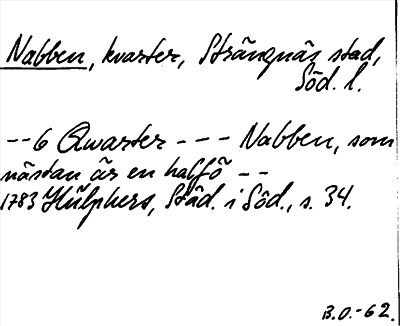 Nabben, kvarter, Strängnäs stad,
Söd. l.
-- 6 Qwarter --- Nabben, som
nästan är en halfö --
1783 Hülphers, Städ. i Söd., s. 34.
B.O.-62.